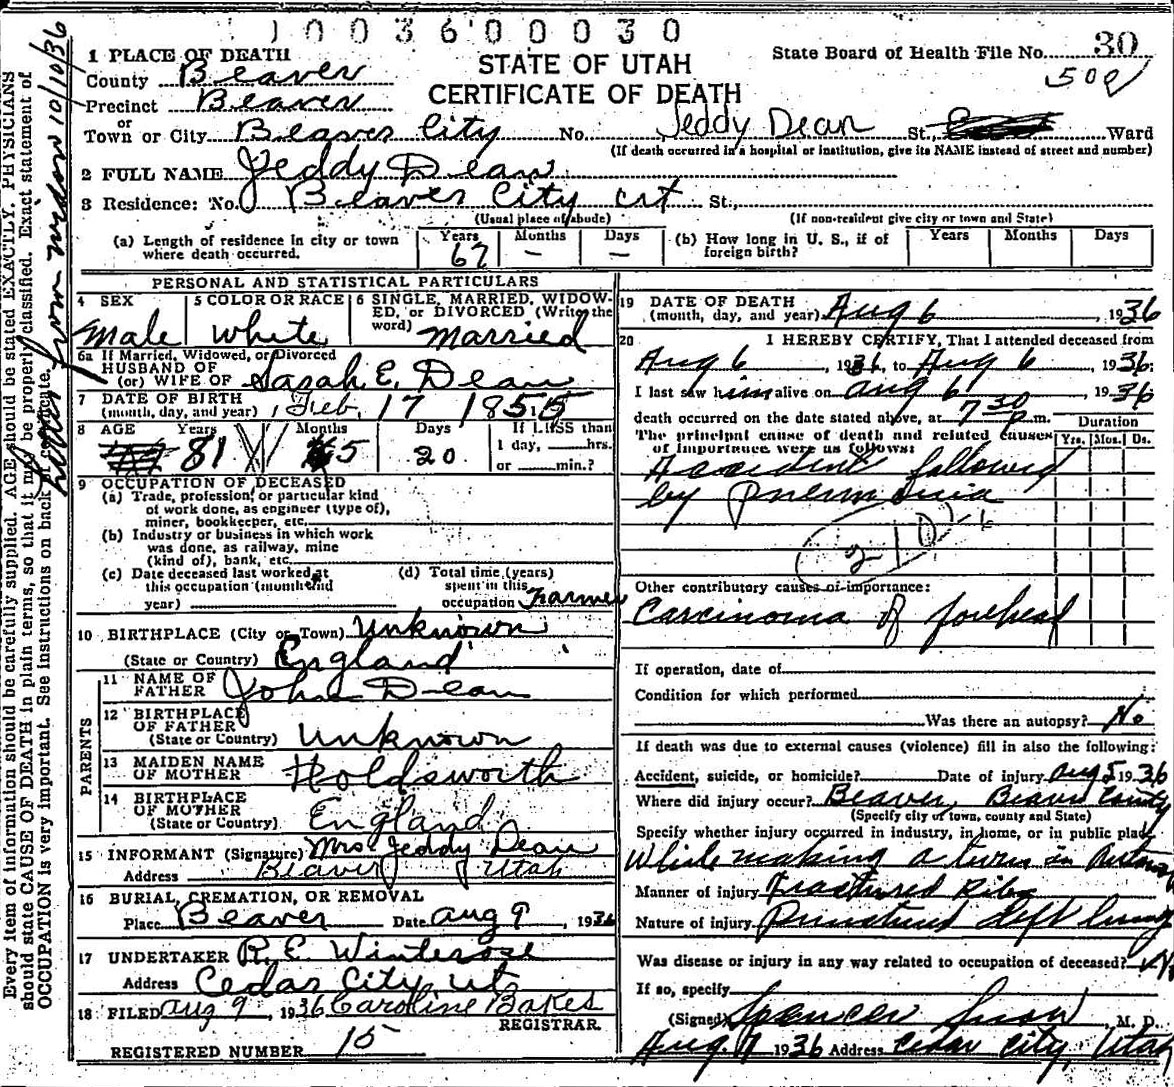 1003600030
1 PLACE OF DEATH
County Beaver
Precinct Beaver
or
Town or City Beaver City No. Jeddy Dean St., Ward
STATE OF UTAH
CERTIFICATE OF DEATH
State Board of Health File No. 30
(If death occurred in a hospital or institution, give its NAME instead of street and number)
2 FULL NAME Jeddy Dean
3 Residence: No. Beaver City St.,
(Usual place of abode) (If non-resident give city or town and State)
(a) Length of residence in city or town where death occurred. Years 67 Months – Days –
(b) How long in U. S., if of foreign birth? Years Months Days
PERSONAL AND STATISTICAL PARTICULARS
4 SEX Male
5 COLOR OR RACE White
6 SINGLE, MARRIED, WIDOWED, or DIVORCED (Write the word) Married
6a If Married, Widowed, or Divorced
HUSBAND OF
(or) WIFE OF Sarah E. Dean
7 DATE OF BIRTH
(month, day, and year) Feb 17 1855
8 AGE Years 81 Months 5 Days 20
If LESS than
1 day, hrs.
or min.?
9 OCCUPATION OF DECEASED
(a) Trade, profession, or particular kind
of work done, as engineer (type of),
miner, bookkeeper, etc.
(b) Industry or business in which work
was done, as railway, mine
(kind of), bank, etc.
(c) Date deceased last worked at
this occupation (month and
year)
(d) Total time (years)
spent in this
occupation Farmer
10 BIRTHPLACE (City or Town) Unknown
(State or Country) England
PARENTS
11 NAME OF
FATHER John Dean
12 BIRTHPLACE
OF FATHER
(State or Country) Unknown
13 MAIDEN NAME
OF MOTHER Holdsworth
14 BIRTHPLACE
OF MOTHER
(State or Country) England
15 INFORMANT (Signature) Mrs Jeddy Dean
Address Beaver Utah
16 BURIAL, CREMATION, OR REMOVAL
Place Beaver Date Aug 9, 1936
17 UNDERTAKER R. E. Winterose
Address Cedar City Ut.
18 FILED Aug 9, 1936 Caroline Bakes
REGISTRAR.
REGISTERED NUMBER 15
19 DATE OF DEATH
(month, day, and year) Aug 6, 1936
20 I HEREBY CERTIFY, That I attended deceased from
Aug 6, 1936, to Aug 6, 1936;
I last saw him alive on Aug 6, 1936
death occurred on the date stated above, at 7 30 p.m.
The principal cause of death and related causes
of importance were as follows:
Duration
Yrs. Mos. Ds.
Accident followed
by pneumonia
210
Other contributory causes of importance:
Carcinoma of forehead
If operation, date of
Condition for which performed
Was there an autopsy? No
If death was due to external causes (violence) fill in also the following:
Accident, suicide, or homicide? Date of injury Aug 5 1936
Where did injury occur? Beaver, Beaver County
(Specify city or town, county and State)
Specify whether injury occurred in industry, in home, or in public place
While making a turn in
Manner of injury Fractured Ribs
Nature of injury Punctured left lung
Was disease or injury in any way related to occupation of deceased?
If so, specify
(Signed) Spencer Snow, M. D.
Aug. 7 1936 Address Cedar City, Utah
Every item of information should be carefully supplied. AGE should be stated EXACTLY. PHYSICIANS
should state CAUSE OF DEATH in plain terms, so that it may be properly classified. Exact statement of
OCCUPATION is very important. See instructions on back of certificate.
from widow 10/10/36